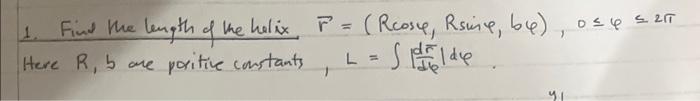 1. Find the length of the helix r⃗ = (Rcosφ, Rsinφ, bφ), 0 ≤ φ ≤ 2π
Here R, b are positive constants, L = ∫ |dr⃗/dφ| dφ.
y1